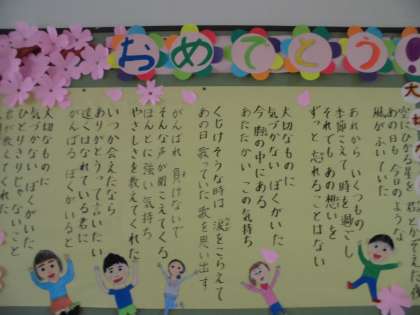 おめでとう!
大切
空にひかる星を 君とかぞえた夜
あの日も今日のような
風がふいていた
あれから いくつもの
季節こえて 時を過ごし
それでも あの想いを
ずっと 忘れることはない
大切なものに
気づかない ぼくがいた
今 胸の中にある
あたたかい この気持ち
くじけそうな時は 涙をこらえて
あの日 歌っていた 歌を思い出す
がんばれ 負けないで
そんな声が 聞こえてくる
ほんとに強い 気持ち
やさしさを 教えてくれた
いつか会えたなら
ありがとうって 言いたい
遠くはなれている 君に
がんばる ぼくがいると
大切なものに
気づかない ぼくがいた
ひとりきりじゃ ないこと
君が教えてくれた